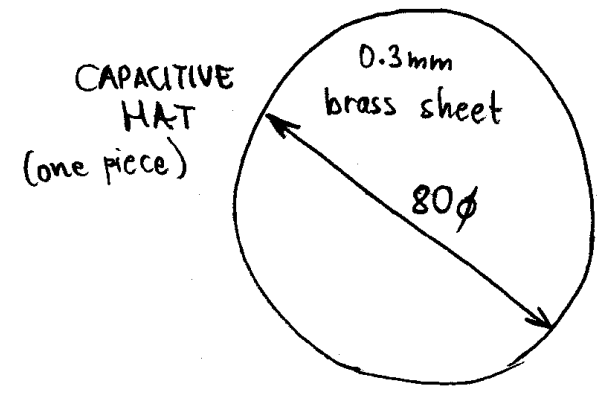 CAPACITIVE
HAT
(one piece)
0.3mm
brass sheet
80ϕ